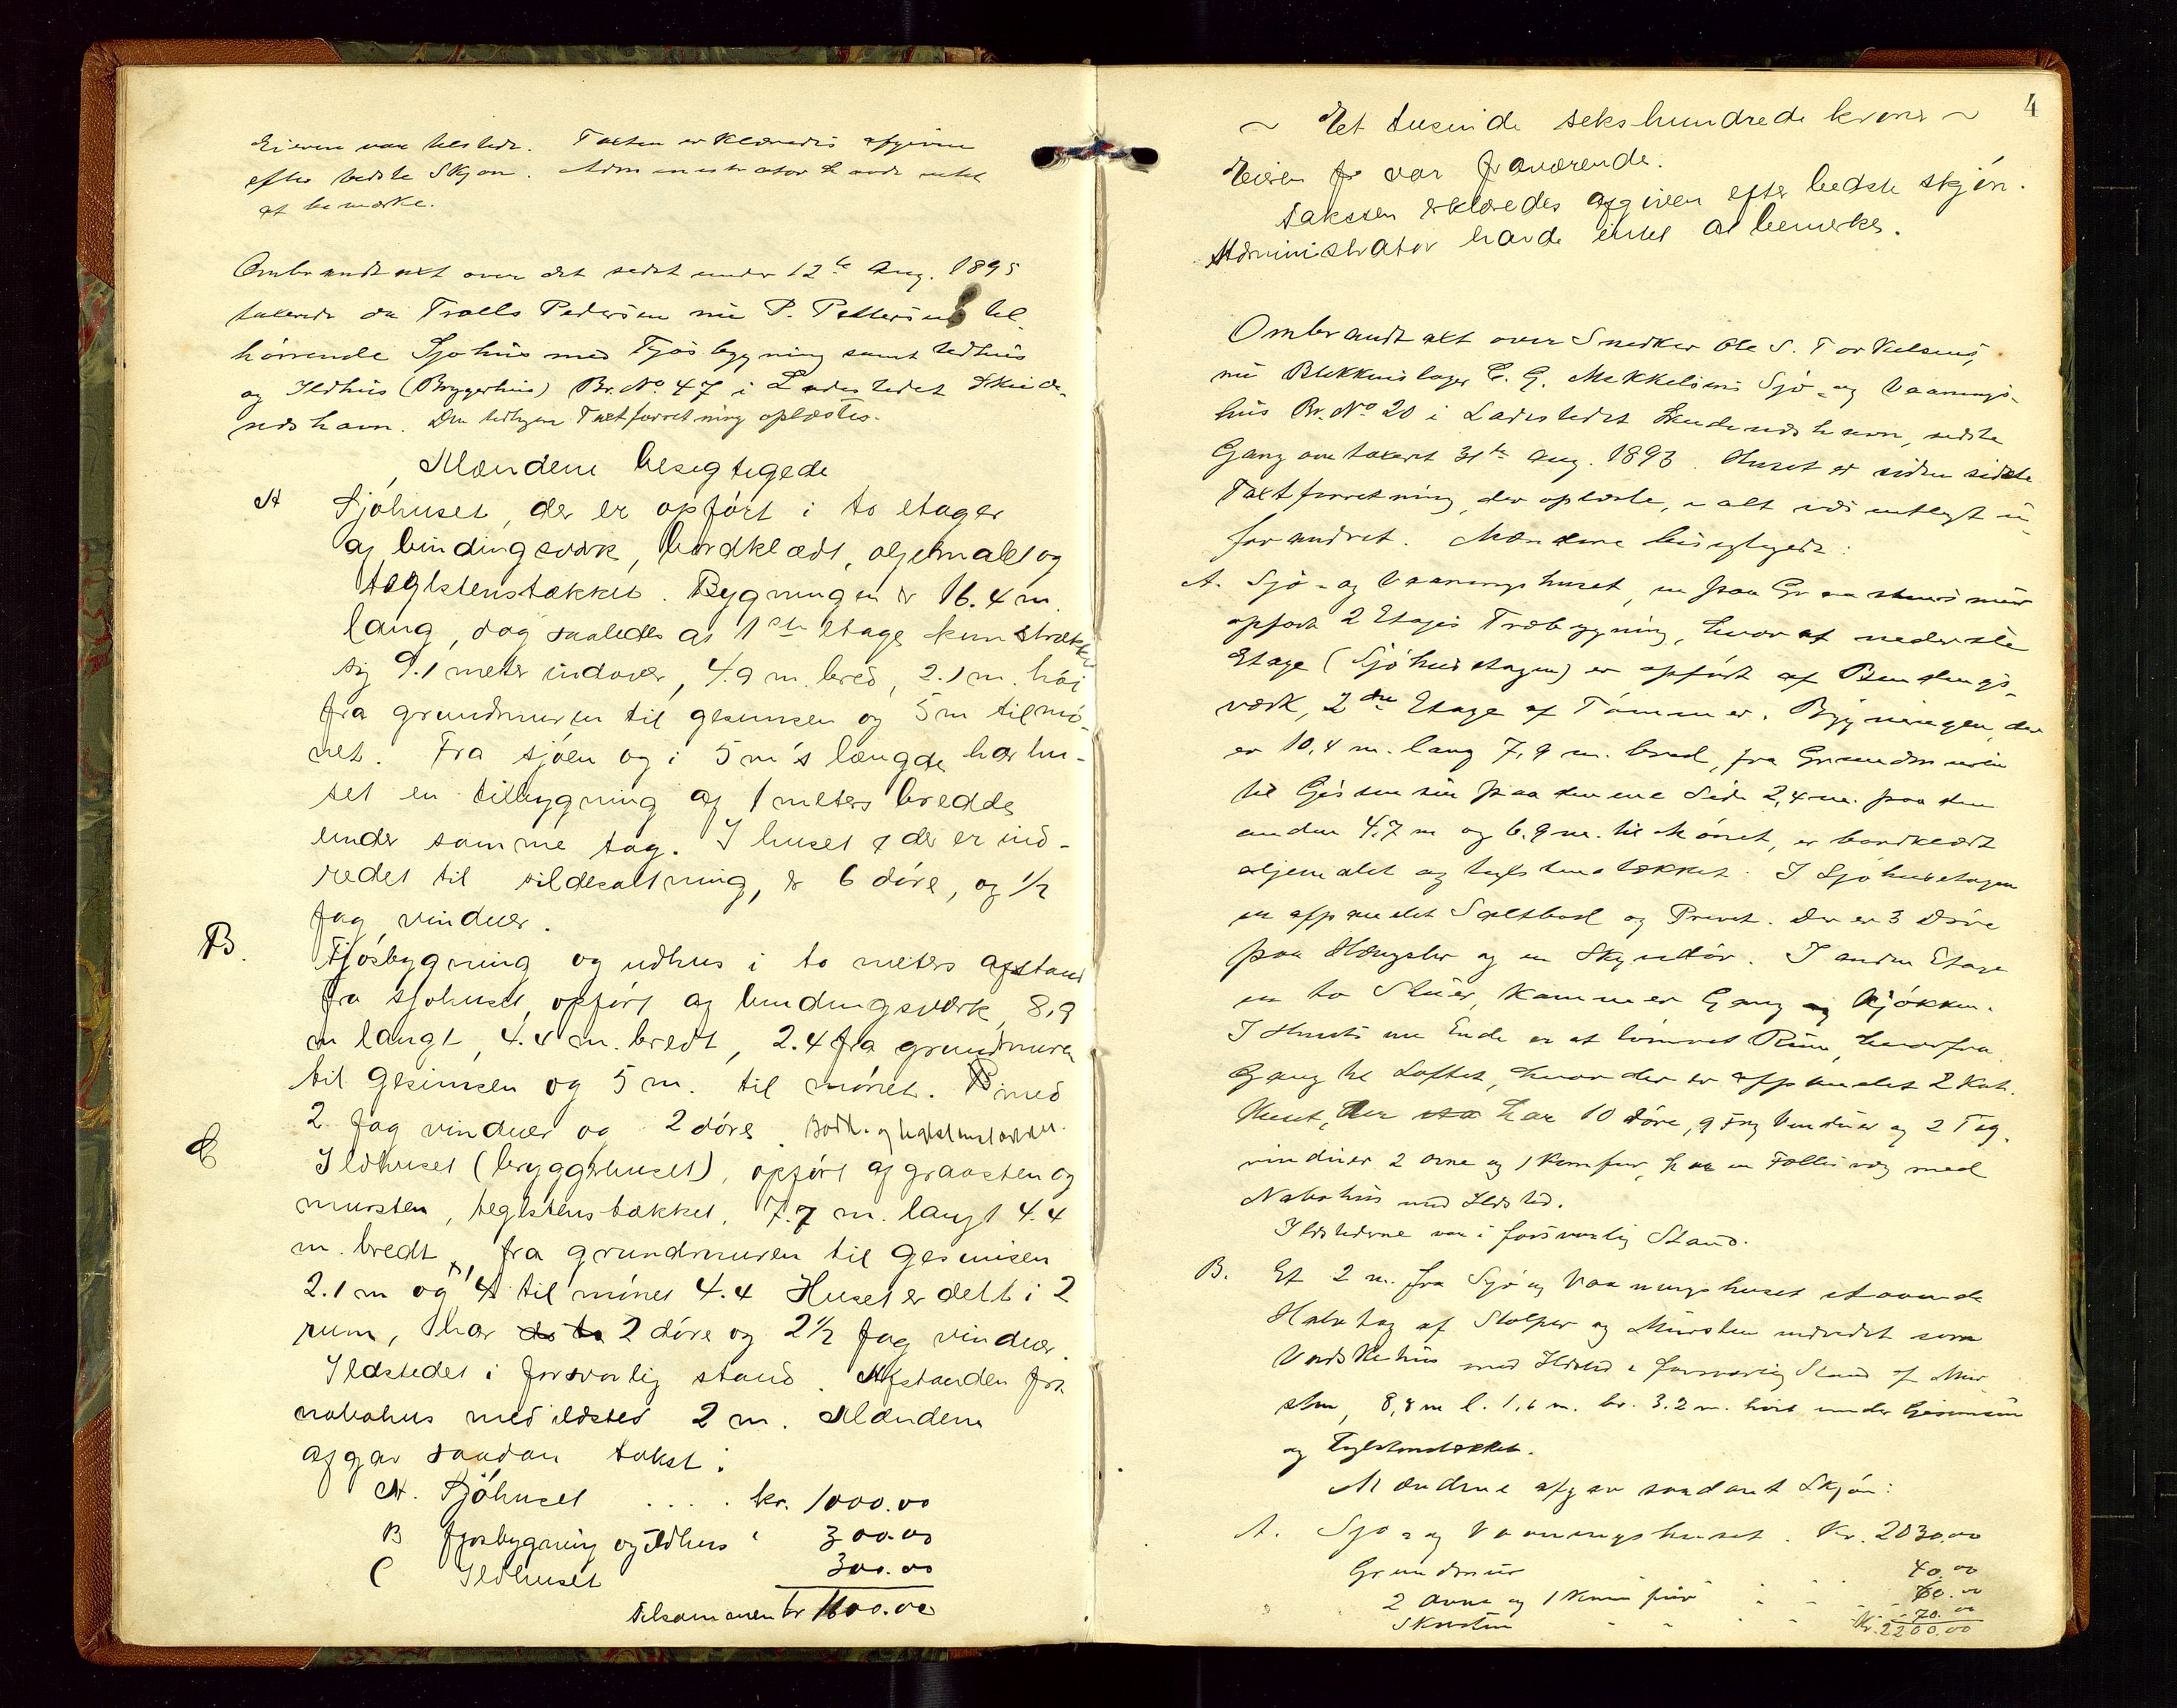 Eieren var tilstede. Taxten erklæredes afgiven
efter bedste Skjøn. Administrator havde intet
at bemærke.
Ombrandtaxt over det sidst under 12te Aug. 1895
takserede da Troells Pedersen nu P. Pettersens til-
hørende Sjøhus med Fjøsbygning samt Udhus
og Ildhus (Bryggerhus) Br. No 47 i Ladestedet Skude-
neshavn. Den tidligere Taxtforretning oplæstes.
Mændene besigtigede
A Sjøhuset, der er opført i to etager
af bindingsværk, bordklædt, oljemalet og
teglstenstækket. Bygningen er 16.4 m.
lang, dog saaledes at 1ste etage kun strækker
sig 9.1 meter indover, 4.9 m. bred, 2.1 m. høi
fra grundmuren til gesimsen og 5 m til mø-
net. Fra sjøen og i 5 m's længde har hu-
set en tilbygning af 1 meters bredde
under samme tag. I huset der er ind-
redet til sildesaltning, er 6 døre, og 1/2
fag vinduer.
B. Fjøsbygning og udhus i to meters afstand
fra sjøhuset, opført af bindingsværk, 8,9
m langt, 4.4 m. bredt, 2.4 fra grundmuren
til gesimsen og 5 m. til mønet. med
2 fag vinduer og 2 døre. Bordk. og teglstenstækket.
C Ildhuset (bryggerhuset), opført af graasten og
mursten, teglstenstækket, 7.7 m. langt 4.4
m. bredt, fra grundmuren til gesimsen
2.1 m og til mønet 4.4 Huset er delt i 2
rum, har 2 døre og 2 1/2 fag vinduer.
Ildstedet i forsvarlig stand. Afstanden fra
nabohus med ildsted 2 m. Mændene
afgav saadan takst:
A. Sjøhuset .... kr. 1000.00
B fjøsbygning og Udhus " 300.00
C Ildhuset 300.00
Tilsammen kr 1600.00
4
~ Et tusinde sekshundrede kroner ~
Eieren var fraværende.
Taksten erklæredes afgiven efter bedste skjøn.
Administrator havde intet at bemerke.
Ombrandtaxt over Snedker Ole S. Torkelsens,
nu Blikkenslager C. G. Mikkelsens Sjø- og Vaanings-
hus Br. No 20 i Ladestedet Skudeneshavn, sidste
Gang omtaxeret 31te Aug. 1893. Huset er siden sidste
Taxtforretning, der oplæstes, i alt væsentligt u-
forandret. Mændene besigtigede:
A. Sjø- og Vaaningshuset, en paa Graastensmur
opført 2 Etages Træbygning, hvoraf nederste
Etage (Sjøhusetagen) er opført af Bindings-
værk, 2den Etage af Tømmer. Bygningen, der
er 10,4 m. lang 7,9 m. bred, fra Grundmuren
til Gesimsen paa den ene Side 2,4 m. paa den
anden 4,7 m og 6.9 m. til Mønet, er bordklædt
oljemalet og teglstenstækket. I Sjøhusetagen
er afpanelet Saltbod og Privet. Der er 3 Døre
paa Hængsler og en Skyvdør. I anden Etage
er to Stuer, Kammer Gang og Kjøkken.
I Husets ene Ende er et tømret Rum, hvorfra
Gang til Loftet, hvor der er afpanelet 2 Kot.
Huset, der har 10 døre, 9 Fag Vinduer og 2 Tag-
vinduer 2 ovne og 1 Komfur, har en Fælles væg med
Nabohus med Ildsted.
Ildstederne var i forsvarlig Stand.
B. Et 2 m. fra Sjø og Vaaningshuset staaende
Halvtag af Stolper og Mursten indredet som
Vadskehus med Ildsted i forsvarlig Stand af Mur-
sten, 8,8 m l. 1,6 m. br. 3.2 m. høit under Gesimsen
og Teglstenstækket.
Mændene afgav saadant Skjøn:
A. Sjø- og Vaaningshuset. Kr. 2030.00
Grundmur 40.00
2 ovne og 1 Komfur 60.00
Skorsten 70.00
Kr. 2200.00